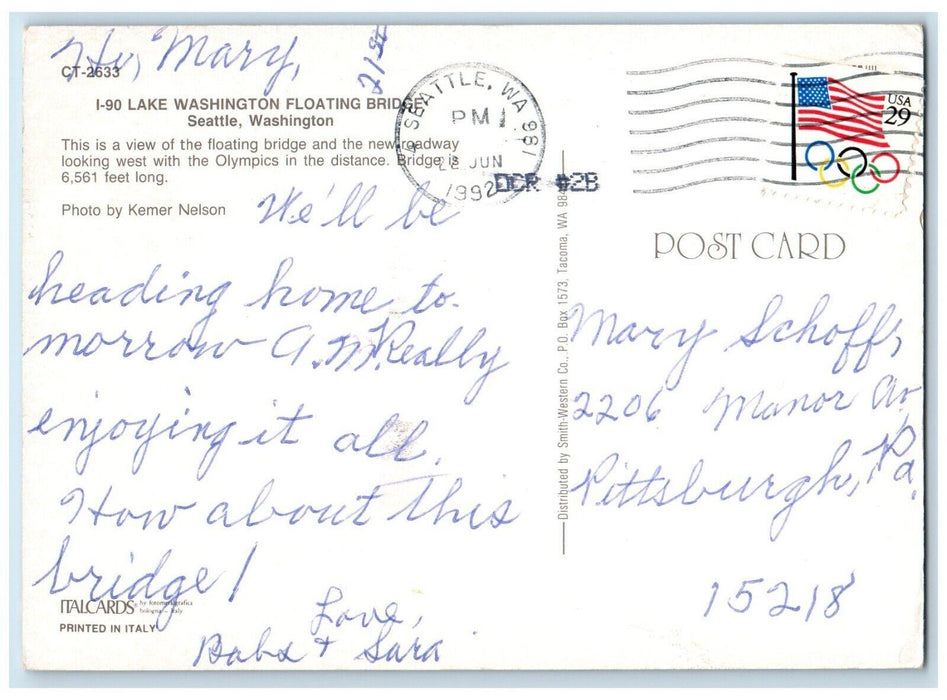 Hi, Mary,
21st
CT-2633
I-90 LAKE WASHINGTON FLOATING BRIDGE
Seattle, Washington
This is a view of the floating bridge and the new roadway
looking west with the Olympics in the distance. Bridge is
6,561 feet long.
Photo by Kemer Nelson
We'll be
heading home to-
morrow A.M. Really
enjoying it all.
How about this
bridge!
Love,
Babs & Sara
ITALCARDS by fotometalgrafica
bologna - italy
PRINTED IN ITALY
SEATTLE, WA 981
PM
22 JUN
1992
DCR #2B
Distributed by Smith-Western Co., P.O. Box 1573, Tacoma, WA 984
USA
29
POST CARD
Mary Schoff,
2206 Manor Av,
Pittsburgh, Pa.
15218